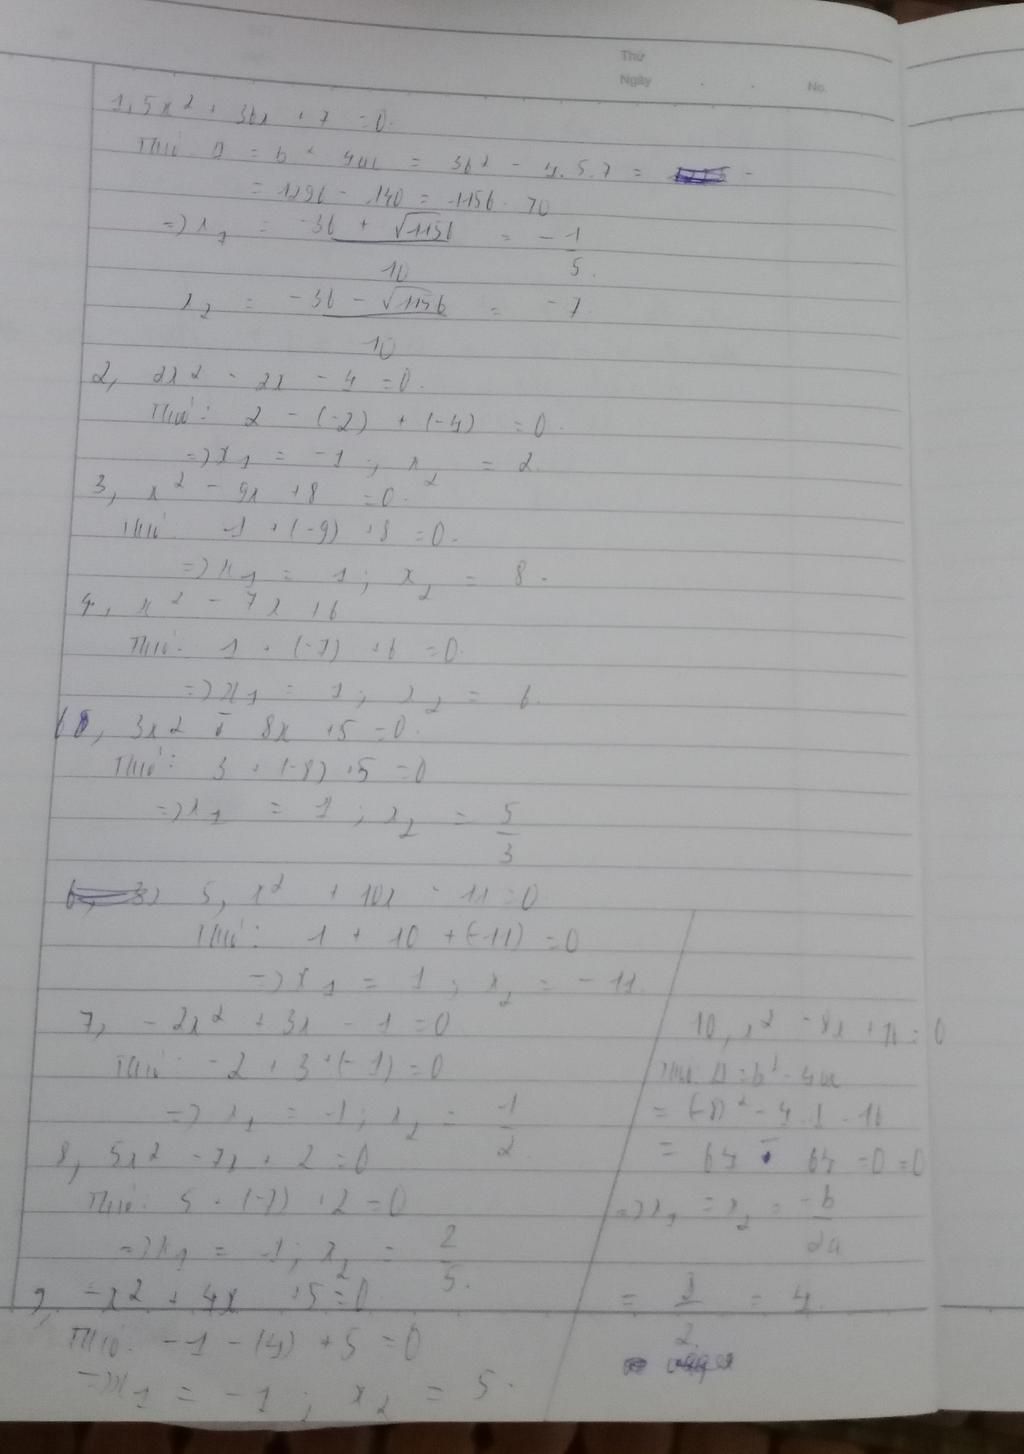 Thứ
Ngày
No.
1, 5x² + 36x + 7 = 0.
Thử Δ = b² 4ac = 36² - 4.5.7 =
= 1296 - 140 = 1156 > 0
=> x₁ = -36 + √1156 / 10 = -1/5.
x₂ = -36 - √1156 / 10 = -7
2, 2x² - 2x - 4 = 0.
Thử: 2 - (-2) + (-4) = 0.
=> x₁ = -1 ; x₂ = 2.
3, x² - 9x + 8 = 0.
Thử 1 + (-9) + 8 = 0.
=> x₁ = 1 ; x₂ = 8.
4, x² - 7x + 6
Thử: 1 + (-7) + 6 = 0.
=> x₁ = 1 ; x₂ = 6.
6, 3x2 - 8x + 5 = 0.
Thử: 3 + (-8) + 5 = 0
=> x₁ = 1 ; x₂ = 5/3
5, x² + 10x - 11 = 0
Thử: 1 + 10 + (-11) = 0
=> x₁ = 1 ; x₂ = -11.
7, -2x² + 3x - 1 = 0
Thử: -2 + 3 + (-1) = 0
=> x₁ = 1 ; x₂ = 1/2.
8, 5x² - 7x + 2 = 0
Thử: 5 + (-7) + 2 = 0
=> x₁ = 1 ; x₂ = 2/5.
9, -x² + 4x + 5 = 0
Thử: -1 - (4) + 5 = 0
=> x₁ = -1 ; x₂ = 5.
10, x² - 8x + 16 = 0
Thử Δ = b² - 4ac
= (-8)² - 4.1.16
= 64 - 64 = 0 = 0
=> x₁ = x₂ = -b/2a
= 8/2 = 4.